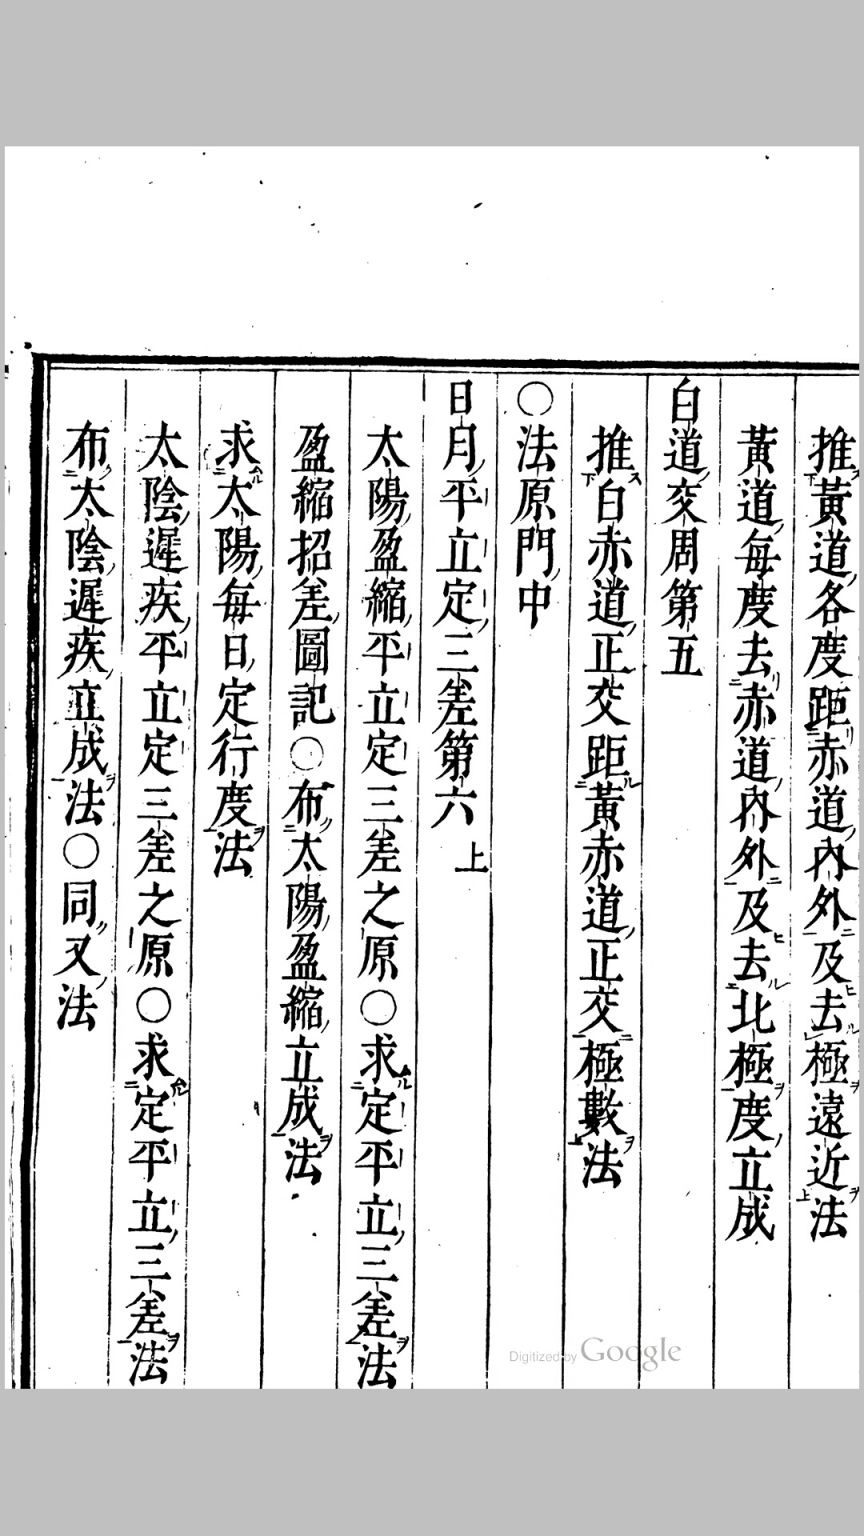 推黃道各度距赤道內外及去極遠近法
黃道每度去赤道內外及去北極度立成
白道交周第五
推白赤道正交距黃赤道正交極數法
〇法原門中
日月平立定三差第六上
太陽盈縮平立定三差之原〇求定平立三差法
盈縮招差圖記〇布太陽盈縮立成法
求太陽每日定行度法
太陰遲疾平立定三差之原〇求定平立三差法
布太陰遲疾立成法〇同又法
Digitized by Google